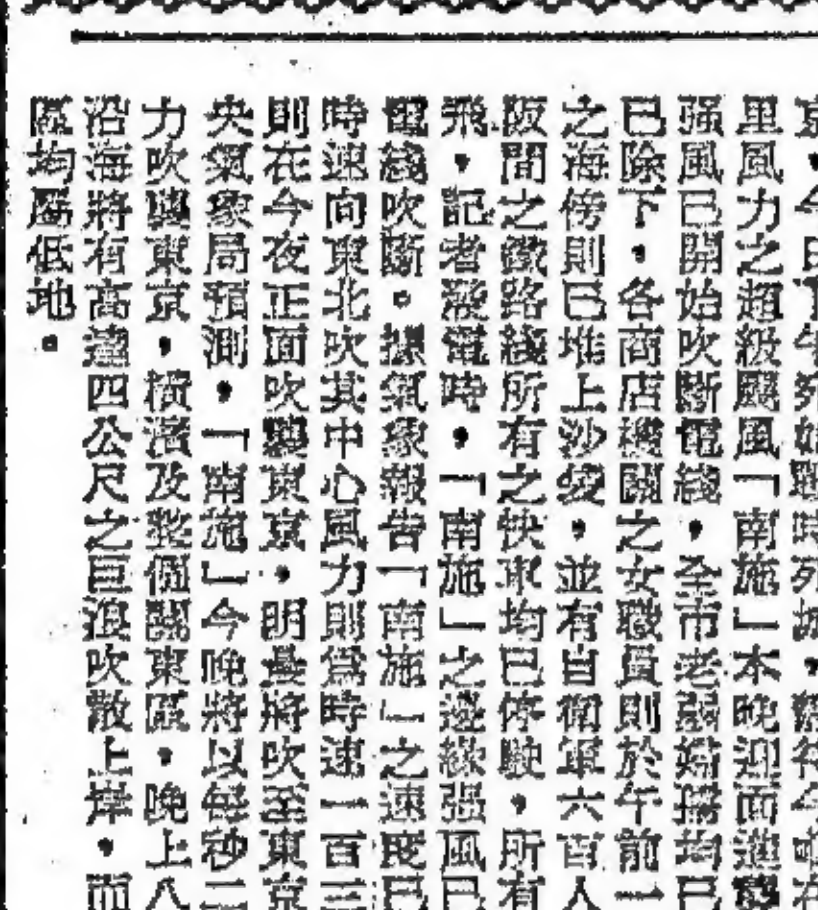 京，今日下午宛如戰時死城，
里風力之超級颶風「南施」本晚迎面進襲
强風已開始吹斷電綫，全市老弱婦孺均已
已除下，各商店機關之女職員則於午前一
之海傍則已堆上沙袋，並有自衛軍六百人
阪間之鐵路綫所有之快車均已停駛，所有
飛，記者發電時，「南施」之邊緣强風已
電綫吹斷。據氣象報告「南施」之速度已
時速向東北吹其中心風力則爲時速一百三
則在今夜正面吹襲東京，明晨將吹至東京
央氣象局預測，「南施」今晚將以每秒二
力吹襲東京，橫濱及整個關東區，晚上八
沿海將有高達四公尺之巨浪吹散上岸，而
區均屬低地。